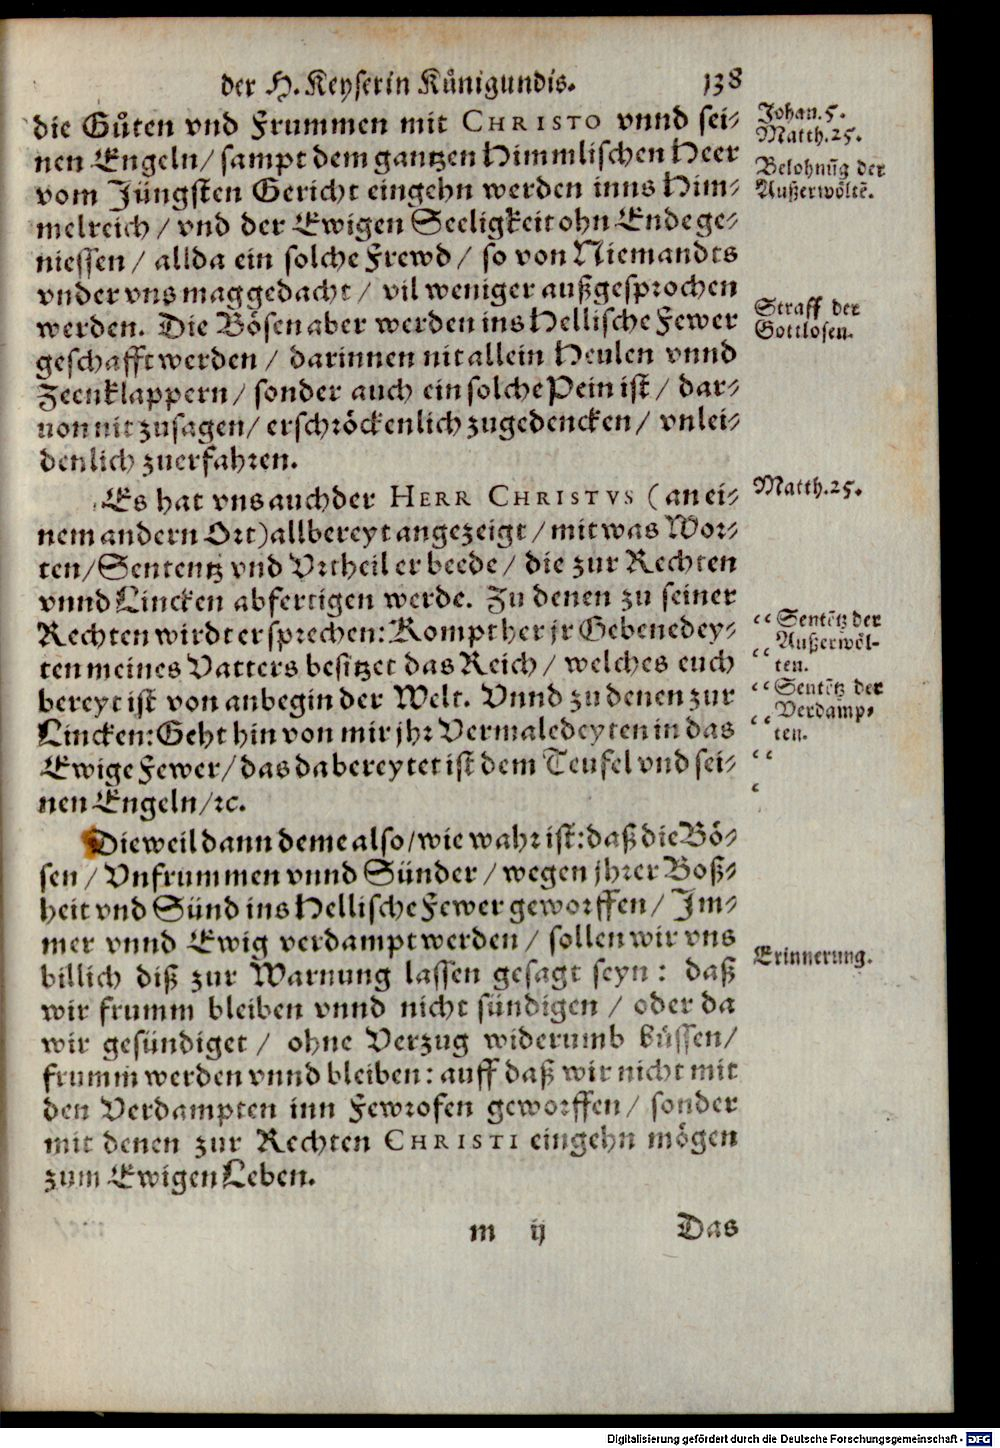 der H. Keyserin Kůnigundis. 138
die Gůten vnd Frummen mit CHRISTO vnnd sei⸗
nen Engeln/ sampt dem gantzen Himmlischen Heer
vom Jüngsten Gericht eingehn werden inns Him⸗
melreich / vnd der Ewigen Seeligkeit ohn Ende ge⸗
niessen / allda ein solche Frewd / so von Niemandts
vnder vns mag gedacht / vil weniger außgesprochen
werden. Die Bösen aber werden ins Hellische Fewer
geschafft werden / darinnen nit allein Heulen vnnd
Zeenklappern / sonder auch ein solche Pein ist / dar⸗
uon nit zusagen / erschröckenlich zugedencken / vnlei⸗
denlich zuerfahren.
Es hat vns auch der HERR CHRISTVS (an ei⸗
nem andern Ort) allbereyt angezeigt / mit was Wor⸗
ten / Sententz vnd Vrtheil er beede / die zur Rechten
vnnd Lincken abfertigen werde. Zu denen zu seiner
Rechten wirdt er sprechen: Kompt her jr Gebenedey⸗
ten meines Vatters besitzet das Reich / welches euch
bereyt ist von anbegin der Welt. Vnnd zu denen zur
Lincken: Geht hin von mir jhr Vermaledeyten in das
Ewige Fewer / das da bereytet ist dem Teufel vnd sei⸗
nen Engeln / ꝛc.
Dieweil dann deme also / wie wahr ist: daß die Bö⸗
sen / Vnfrummen vnnd Sünder / wegen jhrer Boß⸗
heit vnd Sünd ins Hellische Fewer geworffen / Im⸗
mer vnnd Ewig verdampt werden / sollen wir vns
billich diß zur Warnung lassen gesagt seyn: daß
wir frumm bleiben vnnd nicht sündigen / oder da
wir gesündiget / ohne Verzug widerumb büssen /
frumm werden vnnd bleiben: auff daß wir nicht mit
den Verdampten inn Fewrofen geworffen / sonder
mit denen zur Rechten CHRISTI eingehn mögen
zum Ewigen Leben.
m ij Das
Johan. 5.
Matth. 25.
Belohnũg der
Außerwöltẽ.
Straff der
Gottlosen.
Matth. 25.
“ Sentẽtz der
“ Außerwöl-
ten.
“ Sentẽtz der
“ Verdamp⸗
ten.
“
‘
Erinnerung.
Digitalisierung gefördert durch die Deutsche Forschungsgemeinschaft - DFG